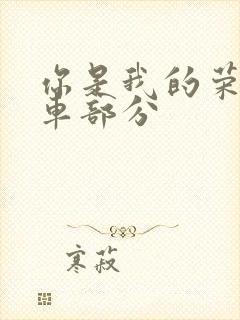 你是我的荣
车部分
寒菽